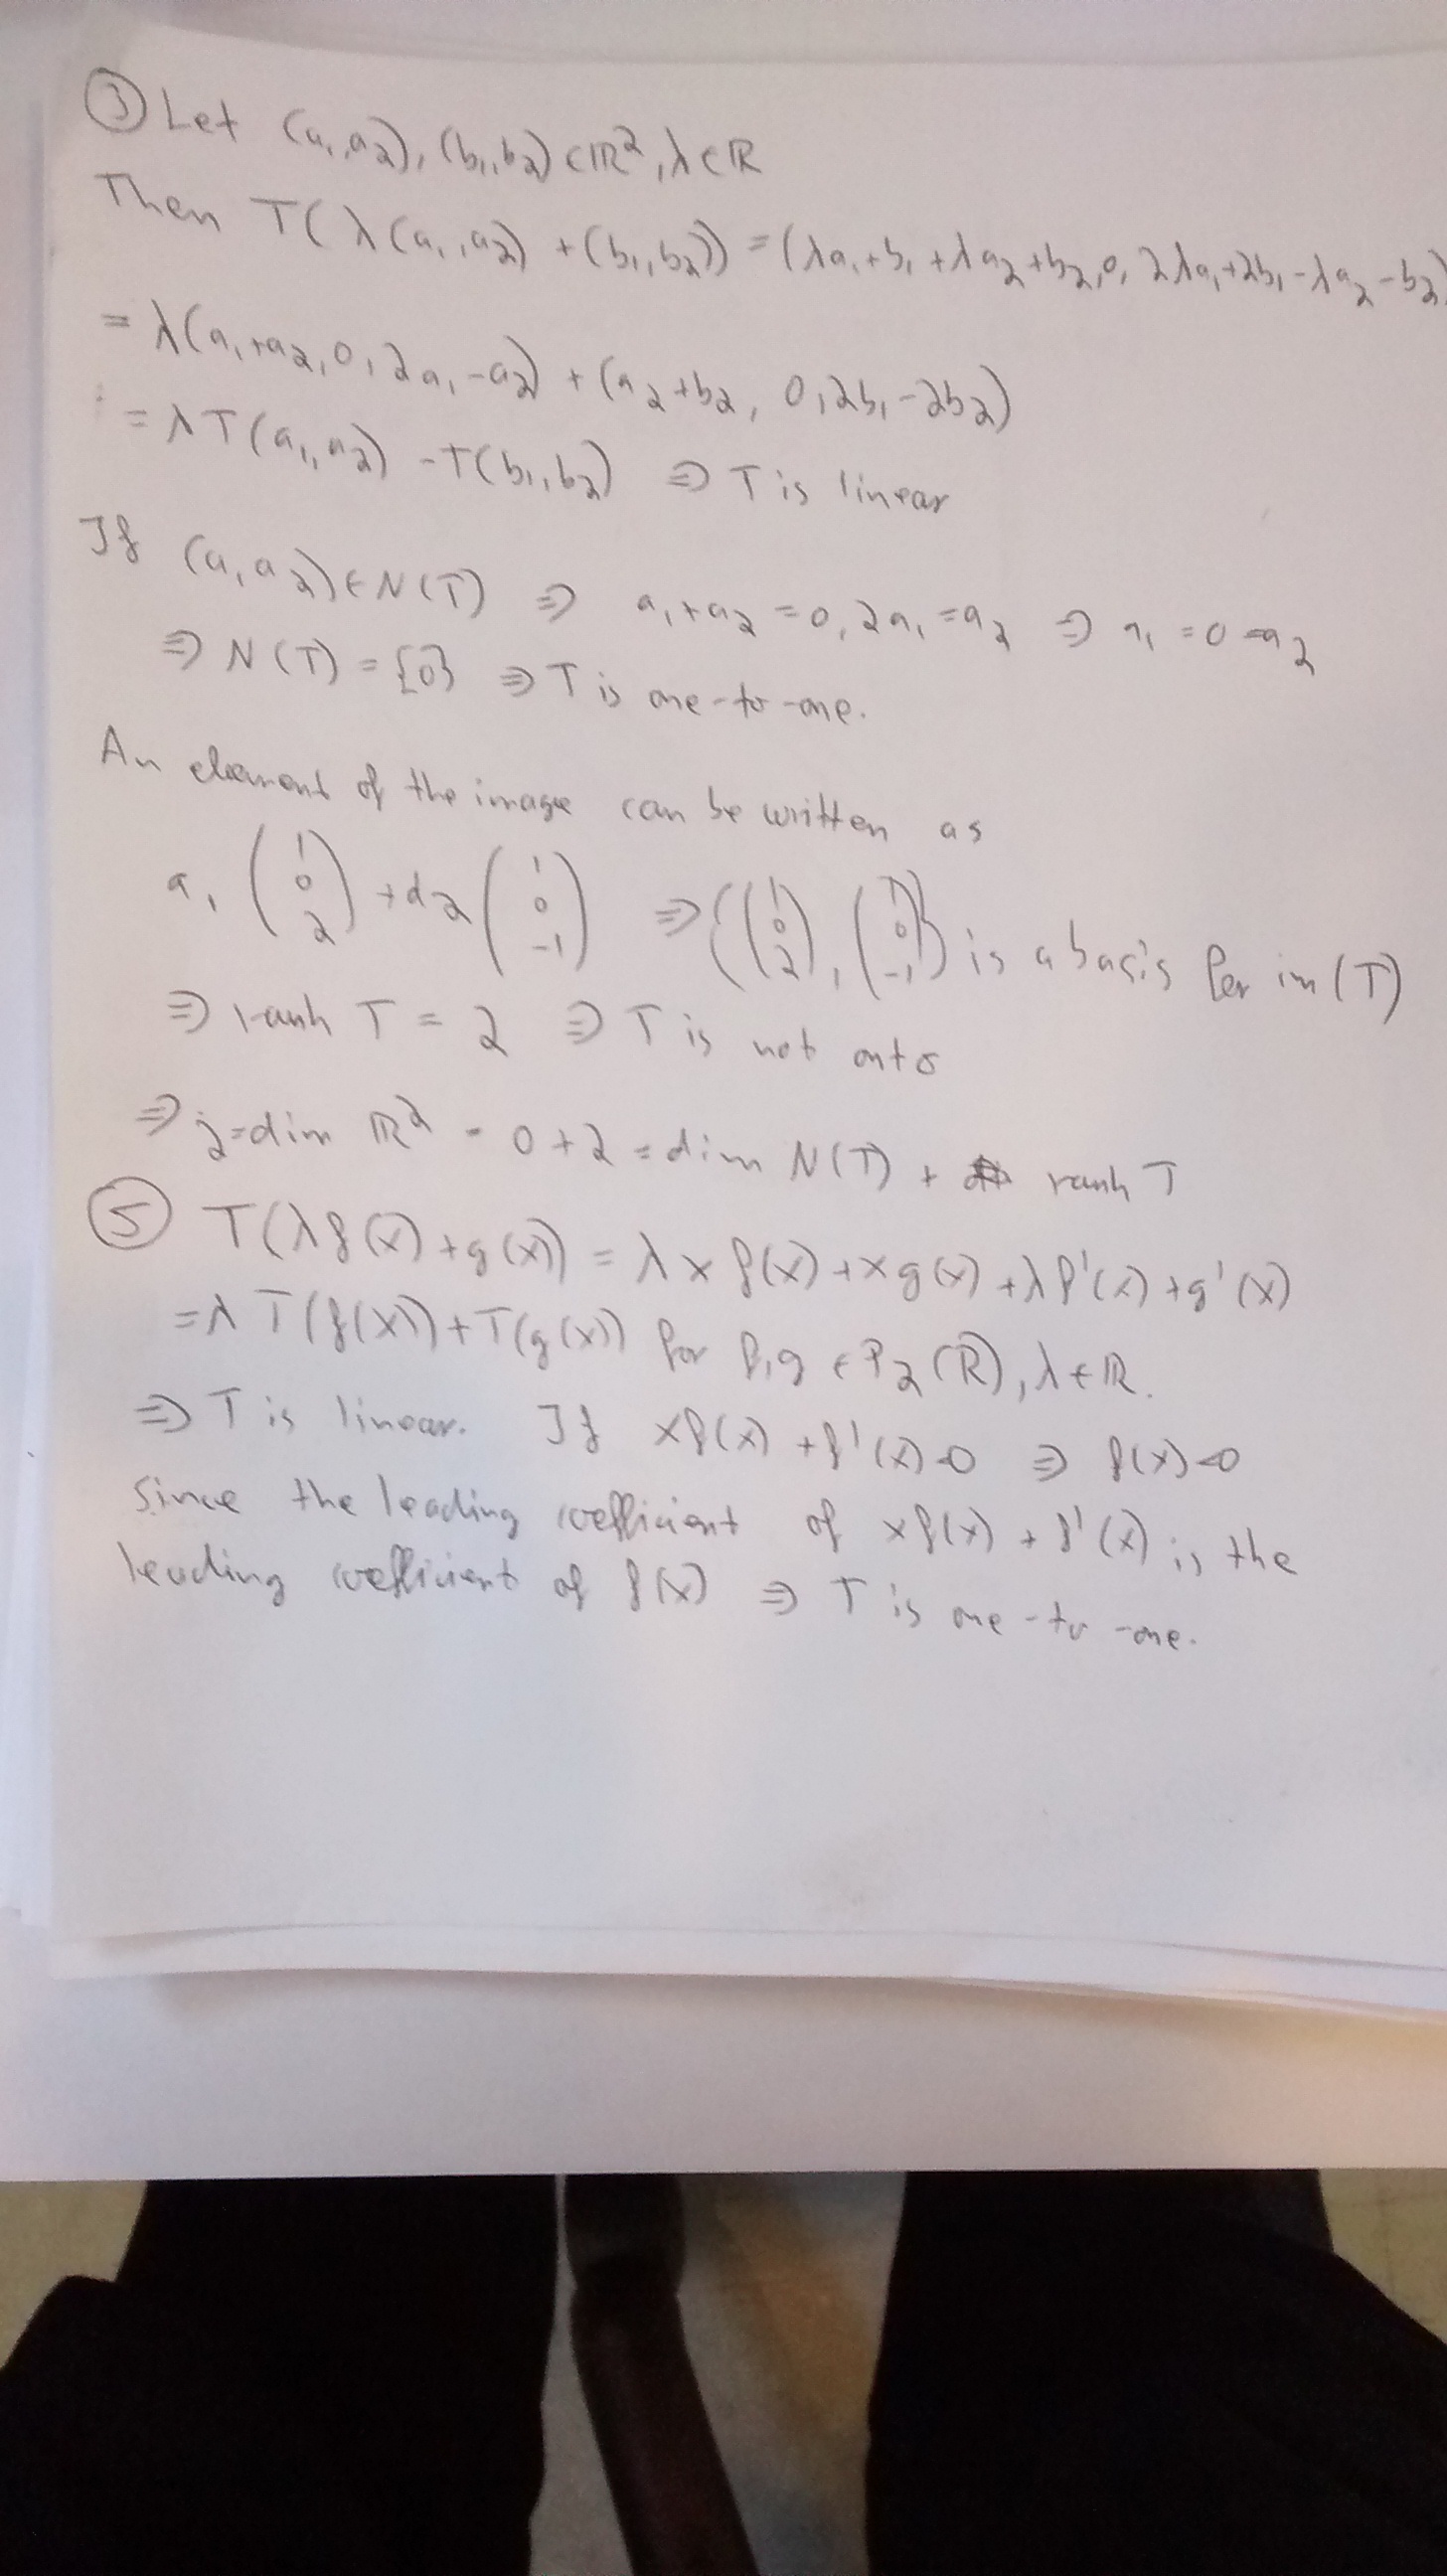 ③ Let (a₁,a₂), (b₁,b₂) ∈ ℝ², λ ∈ ℝ
Then T(λ(a₁,a₂) + (b₁,b₂)) = (λa₁+b₁+λa₂+b₂, 0, 2λa₁+2b₁-λa₂-b₂)
= λ(a₁+a₂, 0, 2a₁-a₂) + (a₂+b₂, 0, 2b₁-2b₂)
= λT(a₁,a₂) - T(b₁,b₂) ⇒ T is linear
If (a₁,a₂) ∈ N(T) ⇒ a₁+a₂ = 0, 2a₁ = a₂ ⇒ a₁ = 0 = a₂
⇒ N(T) = {0} ⇒ T is one-to-one.
An element of the image can be written as
a₁ (1 0 2) + a₂ (1 0 -1) ⇒ {(1 0 2), (1 0 -1)} is a basis for im(T)
⇒ rank T = 2 ⇒ T is not onto
⇒ 2 = dim ℝ² = 0 + 2 = dim N(T) + rank T
⑤ T(λf(x) + g(x)) = λxf(x) + xg(x) + λf'(x) + g'(x)
= λT(f(x)) + T(g(x)) for f,g ∈ P₂(ℝ), λ ∈ ℝ.
⇒ T is linear. If xf(x) + f'(x) = 0 ⇒ f(x) = 0
since the leading coefficient of xf(x) + f'(x) is the
leading coefficient of f(x) ⇒ T is one-to-one.